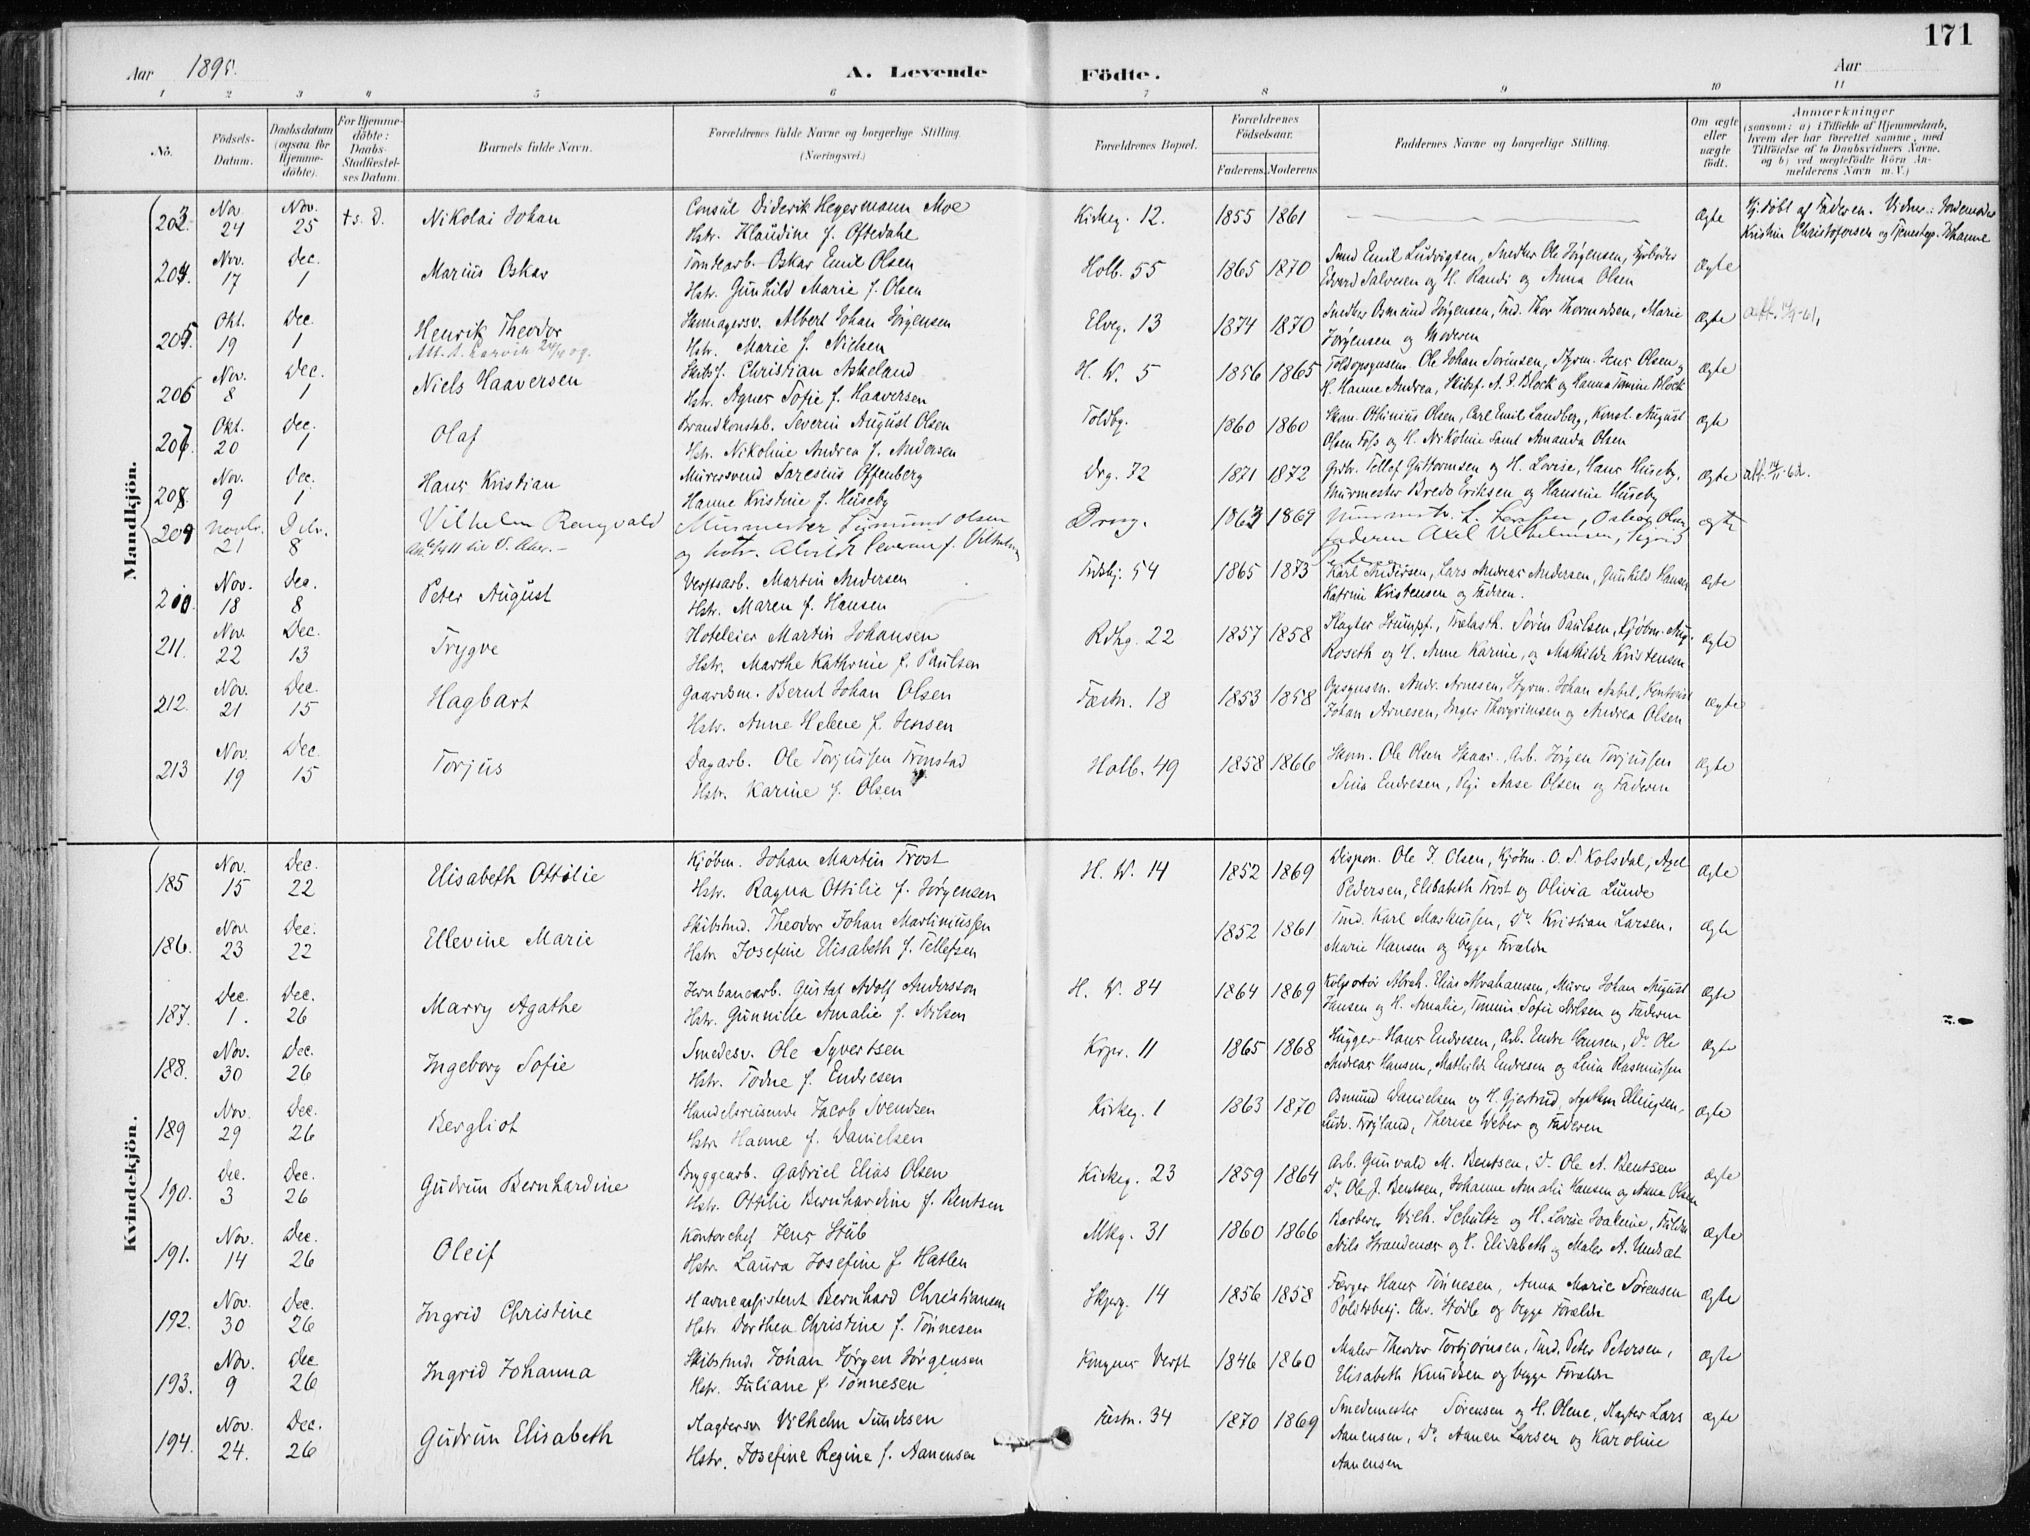 171
Aar 1895. A. Levende Födte. Aar
1 2 3 4 5 6 7 8 9 10 11
No. Födsels-Datum. Daabsdatum (ogsaa for Hjemmedöbte). For Hjemmedöbte: Daabs-Stadfæstelses Datum. Barnets fulde Navn. Forældrenes fulde Navne og borgerlige Stilling. (Næringsvei.) Forældrenes Bopæl. Forældrenes Födselsaar. Faderens Moderens Faddernes Navne og borgerlige Stilling. Om ægte eller uægte födt. Anmærkninger (saasom: a) i Tilfælde af Hjemmedaab, hvem der har forrettet samme, med Tilföielse af to Daabsvidners Navne, og b) ved uægtefödte Börn Anmelderens Navn m. V.)
Mandkjön.
203. Nov. 24 Nov. 25 +s. d. Nikolai Johan Consul Diderik Hegermann Moe Kirkeg. 12. 1855 1861 Ægte Hj.döbt af Faderen. Vidner: Jordemoder
Hstr. Klaudine f. Oftedahl Kristin Christofersen og Tjenestep. Johanne
204. Nov. 17 Dec. 1 Marius Oskar Tomtearb. Oskar Emil Olsen Holb. 55 1865 1870 Tmd Emil Ludvigsen, Snedker Ole Jörgensen, Fyrböder Ægte
Hstr. Gunhild Marie f. Olsen Edvard Salvesen og H. Randi og Anna Olsen
205 Okt. 19 Dec. 1 Henrik Theodor Skomagersv. Albert Johan Jörgensen Elveg. 13 1874 1870 Snedker Osmund Jörgensen, Tmd. Thor Thormodsen, Marie Ægte
Hstr. Marie f. Nielsen Jörgensen og Moderen
206 Nov. 8 Dec. 1 Niels Haaversen Skibsf. Christian Askeland H. W. 5 1856 1865 Toldopsynsm. Ole Johan Sörensen, Styrm. Jens Olsen og Ægte
Hstr. Agnes Sofie f. Haaversen H. Hanne Andrea, Skibsf. A. P. Block og Hanna Tomine Block
207. Okt. 20 Dec. 1 Olaf Brandkonstab. Severin August Olsen Toldbg. 1860 1860 Skom. Othinius Olsen, Carl Emil Landberg, Konst. August Ægte
Hstr. Nikoline Andrea f. Andersen Olsen Foss og H. Nikoline samt Amanda Olsen
208. Nov. 9 Dec. 1 Hans Kristian Murersvend Saresius Offenberg Drg. 72 1871 1872 Tellef Guttormsen og H. Lovise, Hans Huseby, Ægte
Hanne Kristine f. Huseby Murmester Bredo Eriksen og Hansine Huseby
209 Novbr. 21 Dcbr. 8 Vilhelm Rangvald Murmester Sigmund Olsen Drng. 1863 1869 ægte
og hstr. Alvilde Severine f. Vilhelmsen Faderen Axel Vilhelmsen, Sigrid
210. Nov. 18 Dec. 8 Peter August Verftsarb. Martin Andersen 54 1865 1873 Karl Andersen, Lars Andreas Andersen, Gunhild Hansen Ægte
Hstr. Maren f. Hansen Katrine Kristensen og Faderen.
211. Nov. 22 Dec. 13 Trygve Hoteleier Martin Johansen Rdhg. 22 1857 1858 Slagter Stumpf., Trælasth. Sören Paulsen, Kjöbm. Aug. Ægte
Hstr. Marthe Kathrine f. Paulsen Roseth og H. Anne Karine, og Mathilde Kristensen
212. Nov. 21 Dec. 15 Hagbart Gaardsm. Bernt Johan Olsen Fæstn. 18 1853 1858 Opsynsm. Andr. Arnesen, Styrm. Johan Aabel, Kontorist Ægte
Hstr. Anne Helene f. Jensen Johan Arnesen, Inger Thorgrimsen og Andrea Olsen
213 Nov. 19 Dec. 15 Torjus Dagarb. Ole Torjussen Tronstad Holb. 49 1858 1866 Skom. Ole Olsen Skaar, Arb. Jörgen Torjussen Ægte
Hstr. Karine f. Olsen Sina Endresen, Pige Aase Olsen og Faderen
Kvindekjön.
185 Nov. 15 Dec. 22 Elisabeth Ottilie Kjöbm. Johan Martin Trost H. W. 14 1852 1869 Dispon. Ole J. Olsen, Kjöbm. O. S. Kolsdal, Axel Ægte
Hstr. Ragna Ottilie f. Jörgensen Pedersen, Elisabeth Trost og Olivia Lunde
186. Nov 23 Dec. 22 Ellevine Marie Skibstmd. Theodor Johan Martiniussen 1852 1861 Tmd. Karl Markussen, Do Kristian Larsen, Ægte
Hstr Josefine Elisabeth f. Tellefsen Marie Hansen og begge Forældre
187. Dec. 1. Dec. 26 Marry Agathe Jernbanearb. Gustaf Adolf Andersson H. W. 84 1864 1869 Kolportör Abrah. Elias Abrahamsen, Murer Johan August Ægte
Hstr. Gunnille Amalie f. Nilsen Hansen og H. Amalie, Tomine Sofie Nilsen og Faderen
188. Nov. 30 Dec. 26 Ingeborg Sofie Smedesv. Ole Syvertsen Krpr. 11 1865 1868 Hugger Hans Endresen, Arb. Endre Hansen, Do Ole Ægte
Hstr. Todne f. Endresen Andreas Hansen, Mathilde Endresen og Lina Rasmussen
189 Nov. 29 Dec. 26 Bergliot Handelsreisende Jacob Svendsen Kirkeg. 1 1863 1870 Osmund Danielsen og H. Gjertrud, Ellingsen, Ægte
Hstr Hanne f. Danielsen Ludv. Tröyland, Therese Weber og Faderen
190. Dec. 3 Dec. 26 Gudrun Bernhardine Bryggearb. Gabriel Elias Olsen Kirkeg. 23 1859 1864 Arb. Gunvald M. Bentsen, Do Ole A. Bentsen Ægte
Hstr. Ottilie Bernhardine f. Bentsen Do Ole J. Bentsen, Johanne Amalie Hansen og Anna Olsen
191. Nov. 14 Dec. 26 Oleif Kontorchef Jens Stub Mkg. 31 1860 1866 Barberer Wilh. Schultz og H. Lovise Joakime, Ægte
Hstr. Laura Josefine f. Hatlen Nils Strandenæs og H. Elisabeth og Maler A. Undsæt
192. Nov. 30 Dec. 26 Ingrid Christine Havneassistent Bernhard Christiansen Skjerg. 14 1856 1858 Farger Hans Tönnesen, Anna Marie Sörensen Ægte
Hstr Dorthea Christine f. Tönnesen Politibetj. Chr. Stöle og begge Forældre
193. Nov. 9 Dec 26 Ingrid Johanna Skibstmd. Johan Jörgen Jörgensen Kongens Verft 1846 1860 Maler Theodor Torbjörnsen, Tmd. Peter Petersen, Ægte
Hstr. Juliane f. Tönnesen Elisabeth Knudsen og begge Forældre
194. Nov. 24. Dec. 26 Gudrun Elisabeth Slagtersv. Vilhelm Tundesen Fæstn. 34 1870 1869 Smedemester Sörensen og H. Olene, Slagter Lars Ægte
Hstr. Josefine Regine f. Aanensen Aanensen, Do Aanen Larsen og Karoline
Aanensen